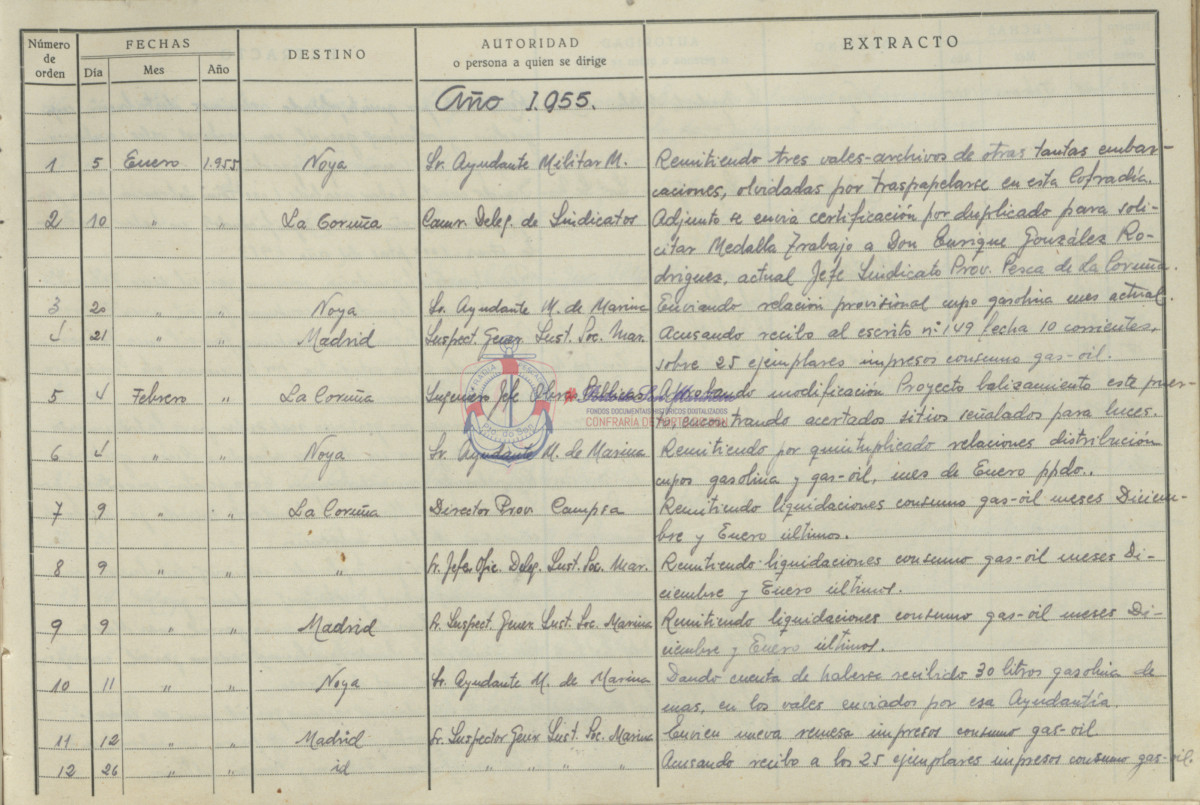 Número de orden FECHAS DESTINO AUTORIDAD EXTRACTO
Día Mes Año o persona a quien se dirige
Año 1.955.
1 5 Enero 1.955 Noya Sr. Ayudante Militar M. Remitiendo tres vales-archivos de otras tantas embar-
caciones, olvidadas por traspapelarse en esta Cofradía.
2 10 " " La Coruña Cam. Deleg. de Sindicatos Adjunto se envia certificación por duplicado para soli-
citar Medalla Trabajo a Don Enrique González Ro-
driguez, actual Jefe Sindicato Prov. Pesca de La Coruña.
3 20 " " Noya Sr. Ayudante M. de Marina Enviando relación provisional cupo gasolina mes actual.
4 21 " " Madrid Inspect. Gener. Inst. Soc. Mar. Acusando recibo al escrito nº 149 fecha 10 corrientes,
sobre 25 ejemplares impresos consumo gas-oil.
5 4 Febrero " La Coruña Ingeniero Jefe Obras Públicas Aprobando modificación Proyecto balizamiento este puer-
to, encontrando acertados sitios señalados para luces.
6 4 " " Noya Sr. Ayudante M. de Marina Remitiendo por quintuplicado relaciones distribución
cupos gasolina y gas-oil, mes de Enero ppdo..
7 9 " " La Coruña Director Prov. Campsa Remitiendo liquidaciones consumo gas-oil meses Diciem-
bre y Enero últimos.
8 9 " " " Sr. Jefe Ofic. Deleg. Inst. Soc. Mar. Remitiendo liquidaciones consumo gas-oil meses Di-
ciembre y Enero últimos.
9 9 " " Madrid Sr. Inspect. Gener. Inst. Soc. Marina Remitiendo liquidaciones consumo gas-oil meses Di-
ciembre y Enero últimos.
10 11 " " Noya Sr. Ayudante M. de Marina Dando cuenta de haberse recibido 30 litros gasolina de
mas, en los vales enviados por esa Ayudantía.
11 12 " " Madrid Sr. Inspector Gener. Inst. Soc. Marina Envien nueva remesa impresos consumo gas-oil.
12 26 " " id " " " " Acusando recibo a los 25 ejemplares impresos consumo gas-oil.
FONDOS DOCUMENTAIS HISTÓRICOS DIXITALIZADOS
CONFRARÍA DE PORTO DO SON